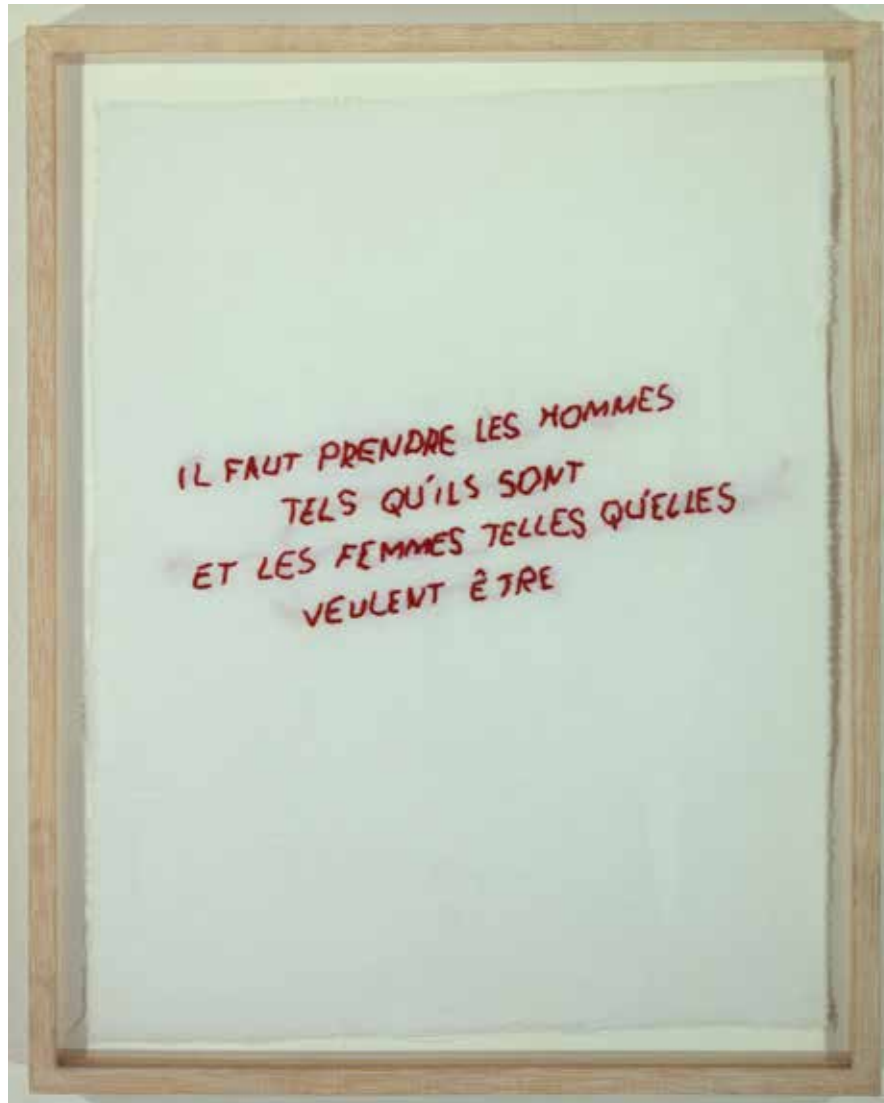 IL FAUT PRENDRE LES HOMMES
TELS QU'ILS SONT
ET LES FEMMES TELLES QU'ELLES
VEULENT ÊTRE